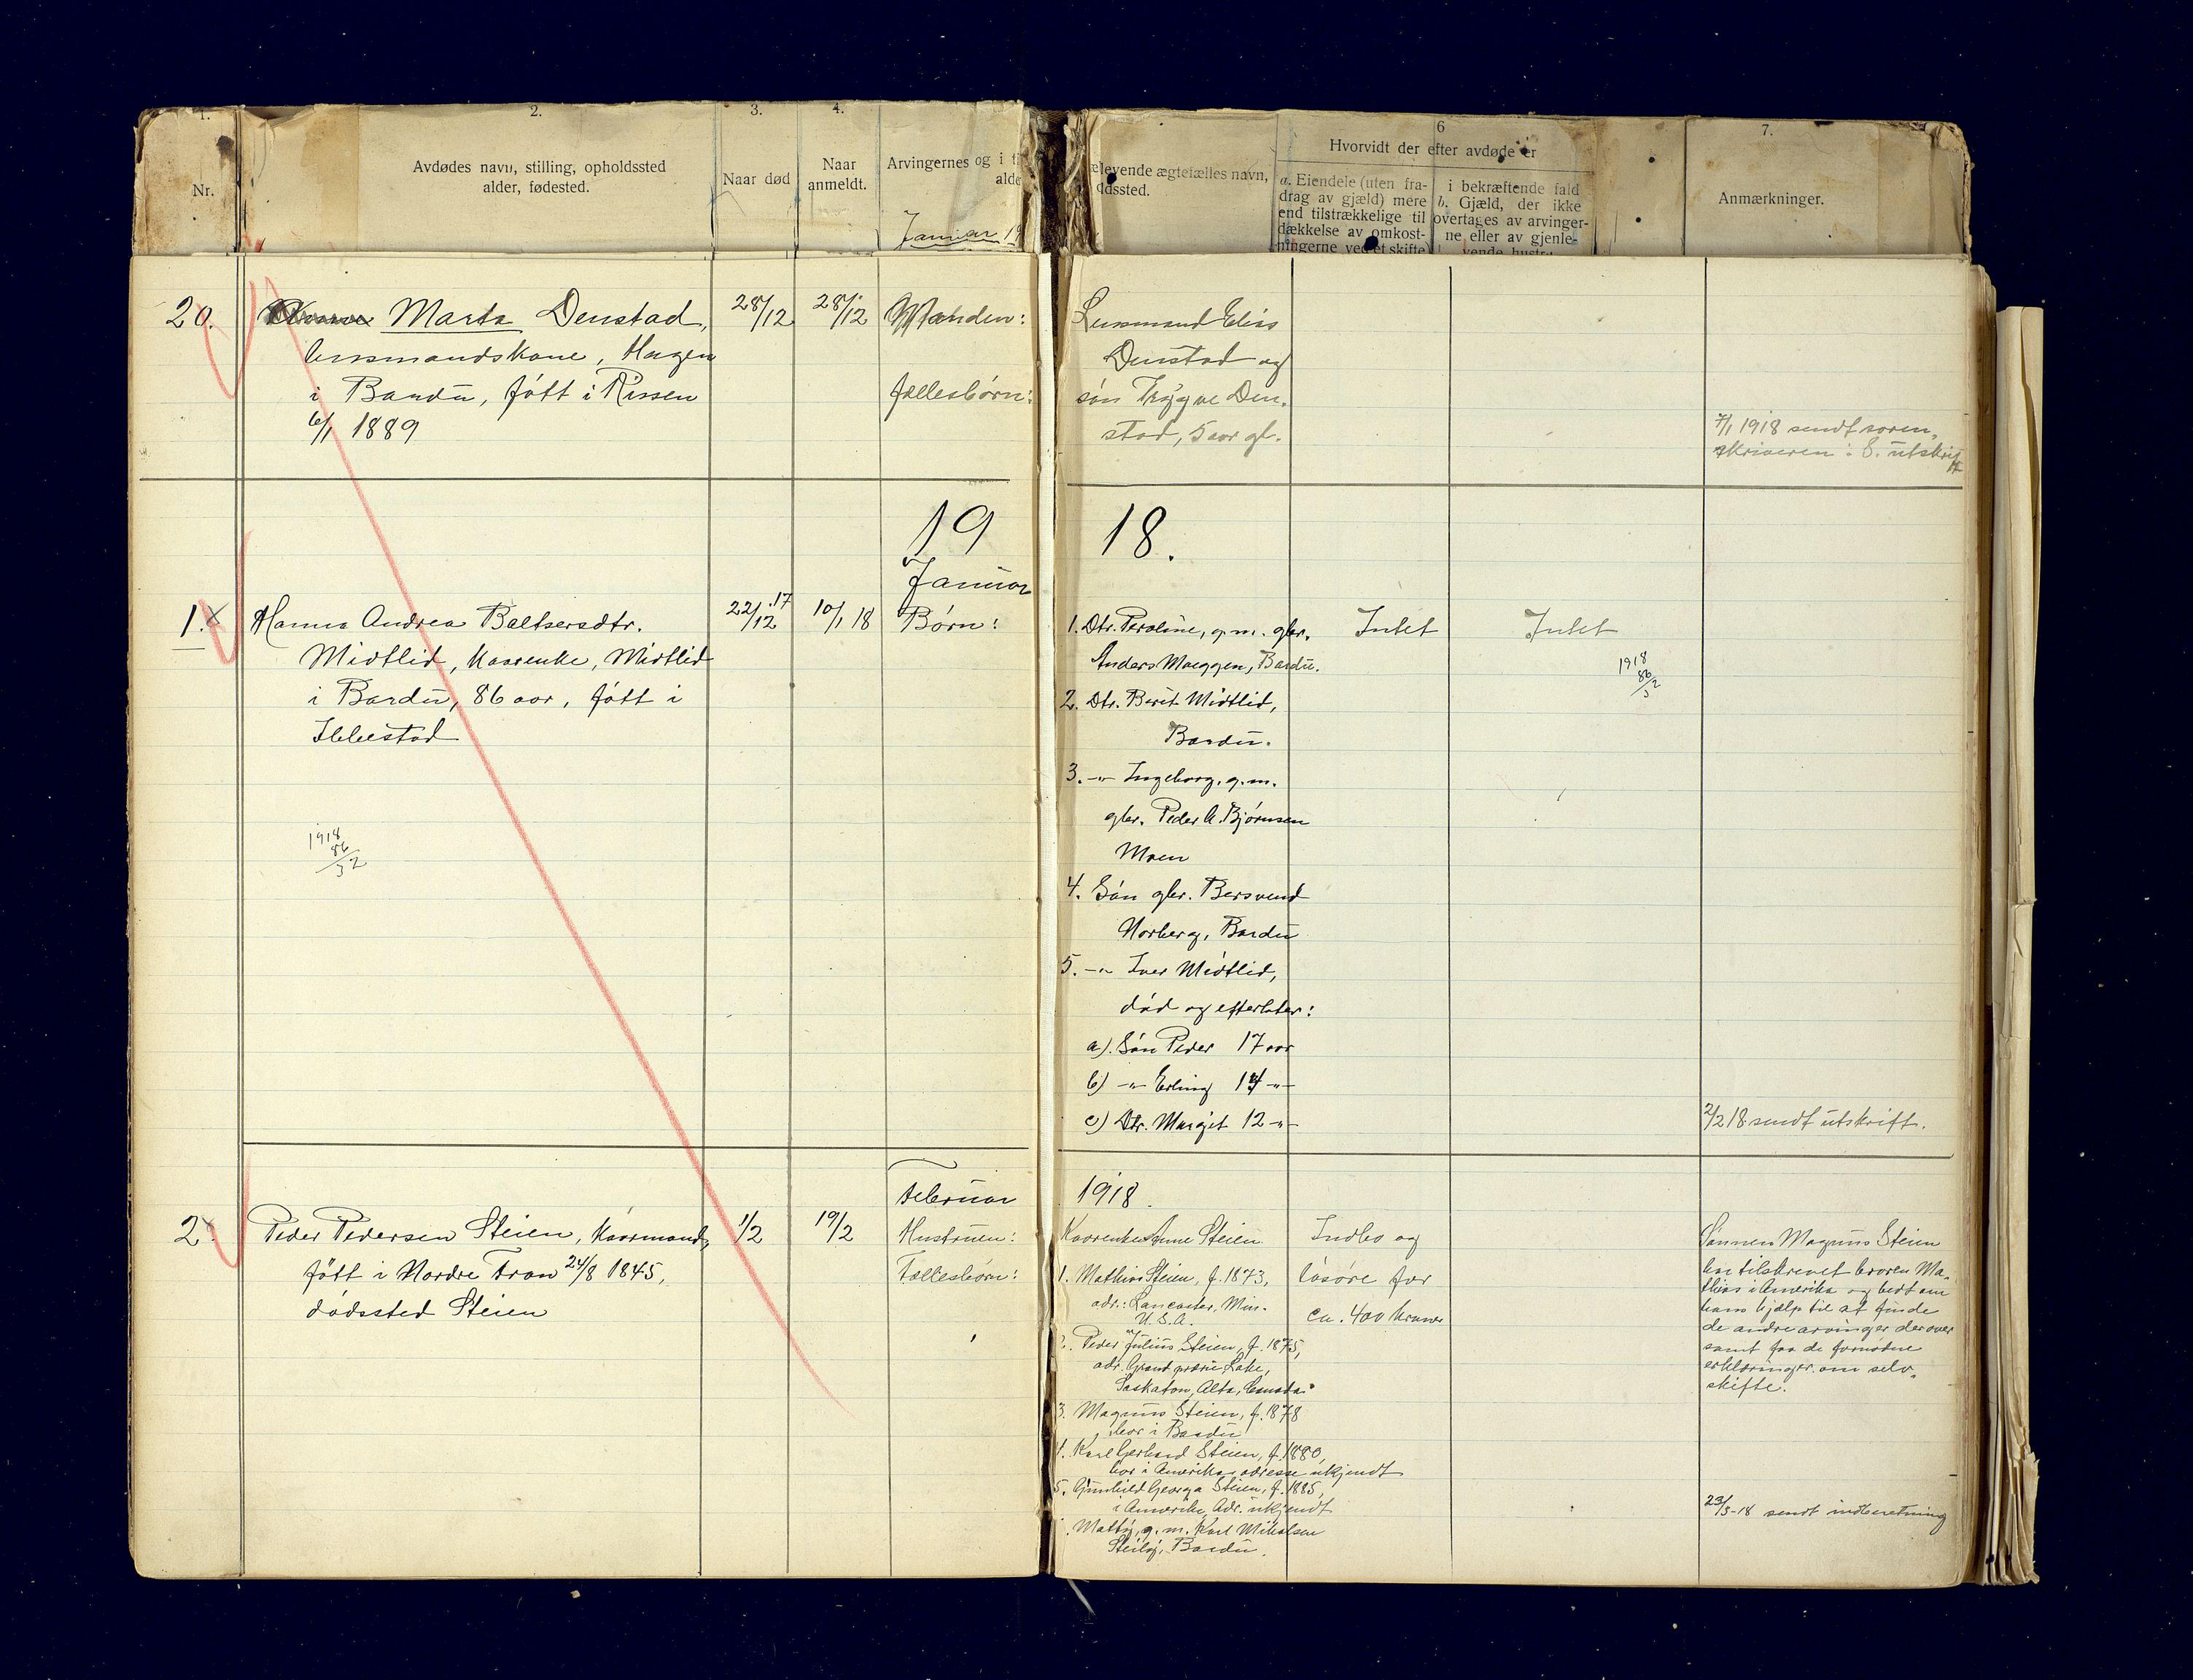 1.
2.
3.
4.
6
7.
Nr.
Avdødes navn, stilling, opholdssted
alder, fødested.
Naar død
Naar
anmeldt.
Arvingernes og i t
alde
Januar 19
levende ægtefælles navn,
ddssted.
Hvorvidt der efter avdøde er
a. Eiendele (uten fra-
drag av gjæld) mere
end tilstrækkelige til
dækkelse av omkost-
ningerne ved et skifte
i bekræftende fald
b. Gjæld, der ikke
overtages av arvinger-
ne eller av gjenle-
vende hustru
Anmærkninger.
20.
Marta Denstad,
lensmandskone, Hagen
i Bardu, født i Rissen
6/1 1889
28/12
28/12
Manden:
fællesbörn:
Lensmand Elias
Denstad og
sön Trygve Den-
stad, 5 aar gl.
7/1 1918 sendt soren-
skriveren: S. utskrift
19
18.
Januar
1. x
Hanna Andrea Baltsersdtr.
Midtlid, kaarenke, Midtlid
i Bardu, 86 aar, født i
Ibbestad
1918
86
32
22/12 .17
10/1 18
Börn:
1. Dtr. Peroline, g. m. gbr.
Anders Moeggen, Bardu.
2. Dtr. Berit Midtlid,
Bardu.
3. -"- Ingeborg, g. m.
gbr. Peder A. Bjørnsen
Moen
4. Sön gbr. Bersvend
Norberg, Bardu
5. -"- Iver Midtlid,
död og efterlater:
a). Sön Peder 17 aar
b) -"- Erling 14 -"-
c) Dtr. Margit 12 -"-
Intet
Intet
1918
86
32
2/2 18 sendt utskrift.
Februar
1918.
2. x
Peder Pedersen Steien, kaarmand,
född i Nordre Fron 24/8 1845,
dödssted Steien
1/2
19/2
Hustruen:
Fællesbörn:
Kaarenke Anne Steien
1. Mathias Steien, f. 1873,
adr.: Lancaster, Min.
U. S. A.
2. Peder Julius Steien, f. 1875,
adr. Grand prærie Lake,
Saskaton, Alta, Canada.
3. Magnus Steien, f. 1878
bor i Bardu
4. Karl Gerhard Steien, f. 1880,
bor i Amerika, adresse ukjendt
5. Gunhild Georga Steien, f. 1885,
i Amerika Adr. ukjendt
g. m. Karl Mikalsen
Bardu.
Indbo og
lösöre for
ca. 400 kroner
Sønnen Magnus Steien
har tilskrevet broren Ma-
thias i Amerika og bedt om
hans hjælp til at finde
de andre arvinger derover
samt faa de fornødne
erklæringer om selv-
skifte.
23/3-18 sendt indberetning